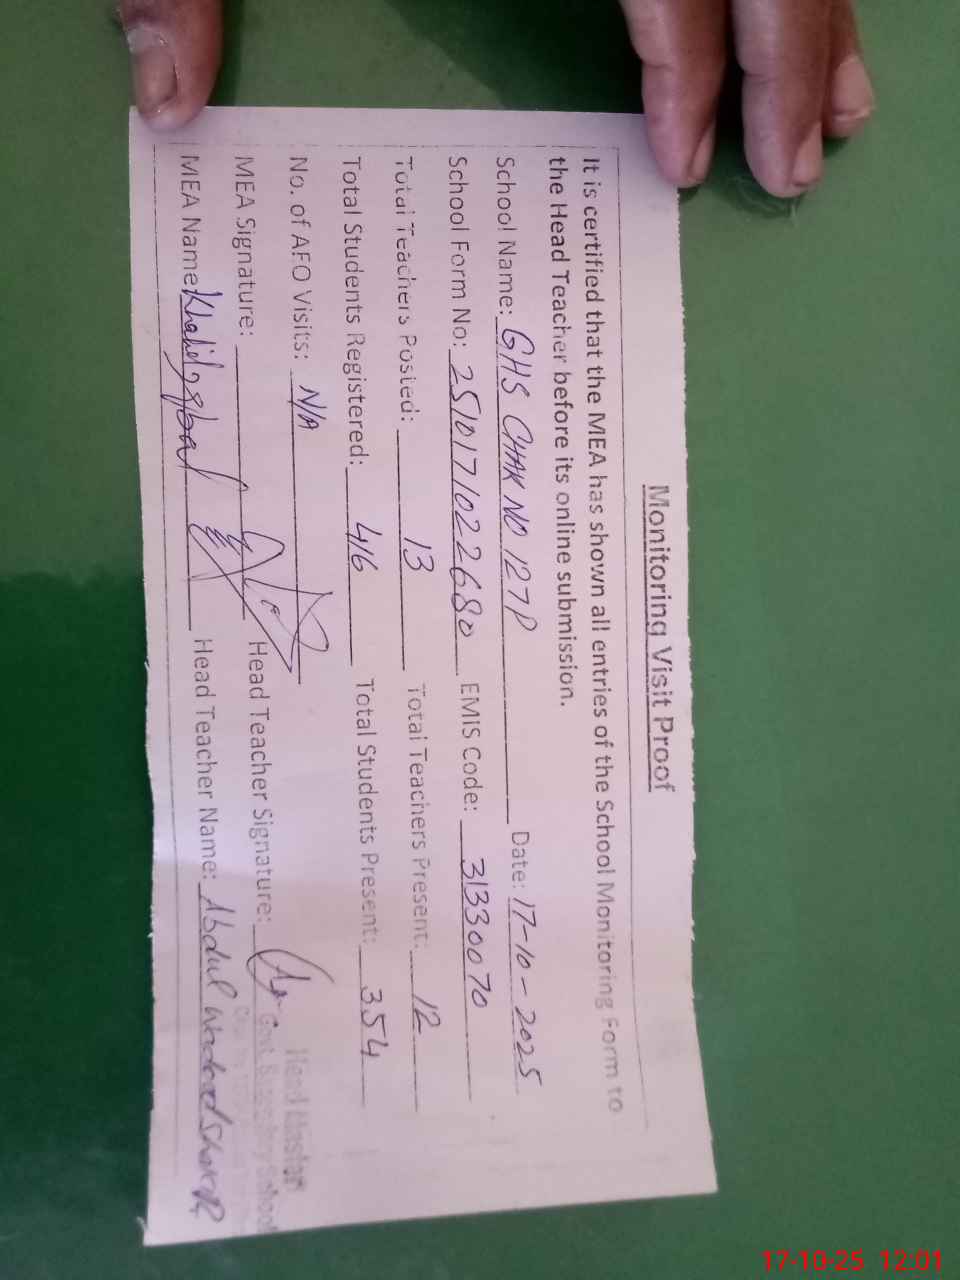 Monitoring Visit Proof
It is certified that the MEA has shown all entries of the School Monitoring Form to
the Head Teacher before its online submission.
School Name: GHS CHAK NO 127P Date: 17-10-2025
School Form No: 2510171022680 EMIS Code: 31330070
Total Teachers Posted: 13 Total Teachers Present: 12
Total Students Registered: 416 Total Students Present: 354
No. of AFO Visits: N/A
MEA Signature: Head Teacher Signature:
MEA Name: Khalid Iqbal Head Teacher Name: Abdul
Head Master
Govt. Secondary School
17-10-25 12:01